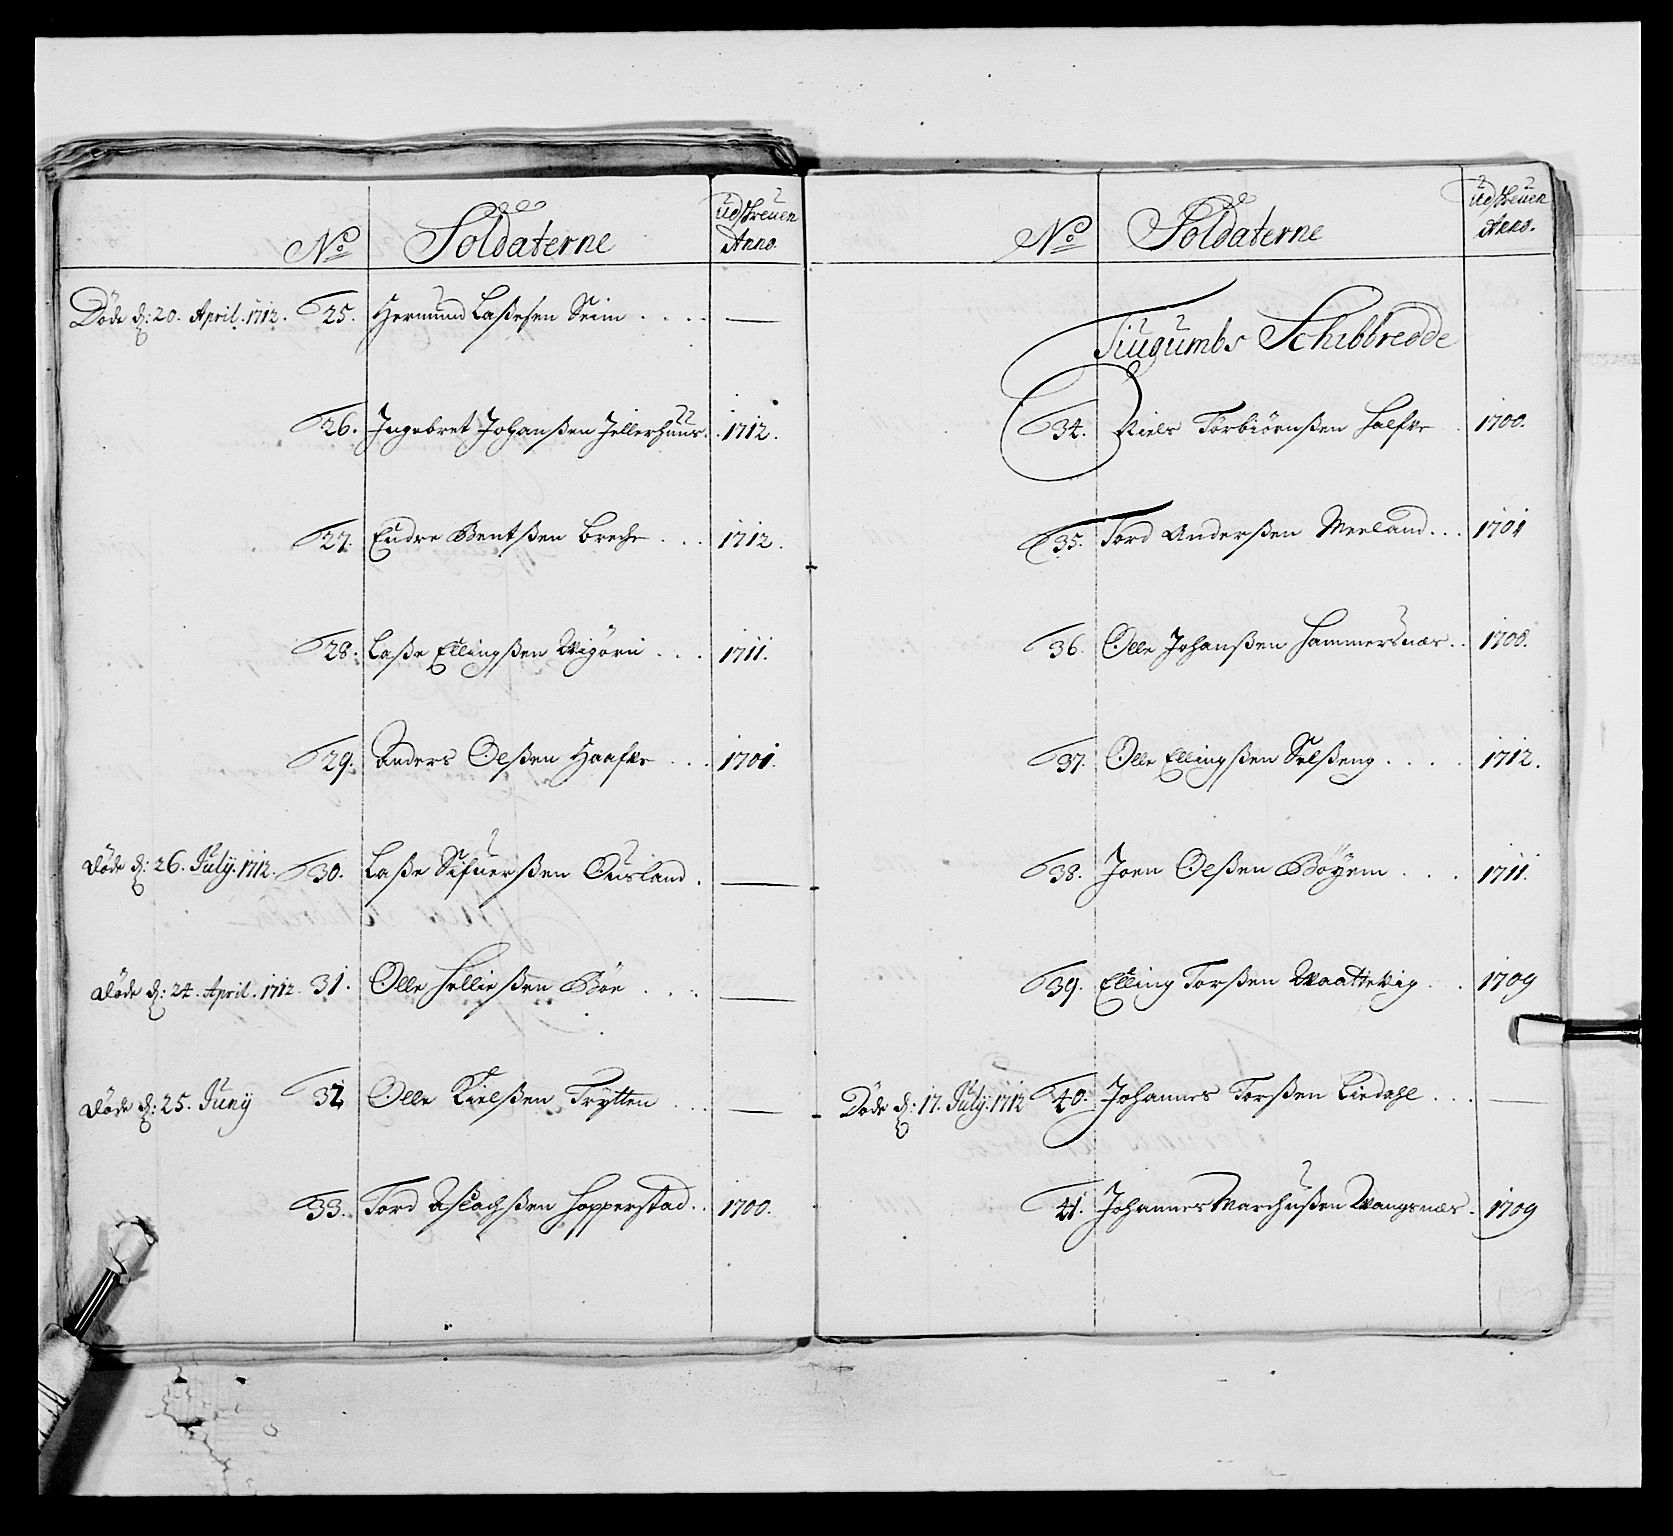 No Soldaterne Udskreven Anno.
Döde d: 20. April. 1712. 25. Hermund Laßesen Seim . . . . —
26. Ingebret Johanßen Jellerhuus . 1712.
27. Endre Bentßen Breche . . . 1712.
28. Laße Ellingßen Wigörn . . . 1711.
29. Anders Olßen Haafve . . . 1701.
Döde d: 26. July. 1712. 30. Laße Sifuerßen Ousland . —
Döde d: 24. April. 1712. 31. Olle Helließen Böe . . . —
Döde d: 25. Juny 32 Olle Kielßen Trytten . . . —
33. Tord Aslachßen Hopperstad . . 1700.
No Soldaterne Udskreven Anno.
Tiugumbs Schibbredde
34. Niels Torbiörnßen Halfve . 1700.
35. Tord Anderßen Meeland . . . 1701
36. Olle Johanßen Hammersnæs . . 1708.
37. Olle Ellingßen Selßeng . . . . 1712.
38. Joen Olßen Böyem . . . 1711.
39. Elling Torßen Waattevig . . 1709
Döde d: 17. July. 1712 40. Johannes Torßen Liedahl . . . —
41. Johannes Marchußen Wangsnæs . 1709